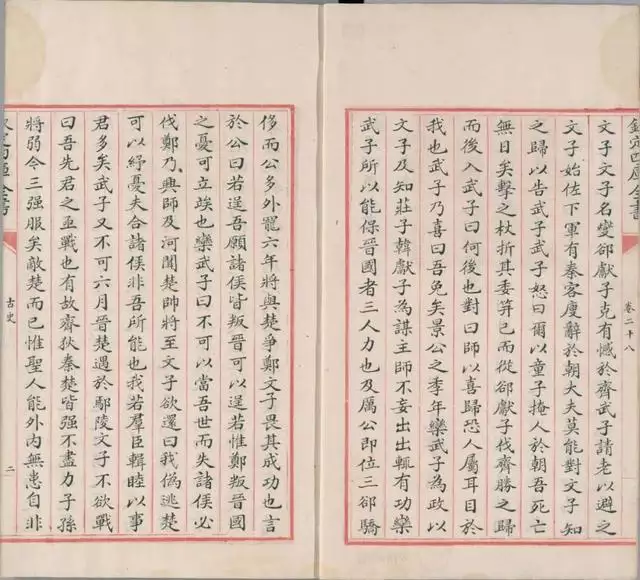 欽定四庫全書
卷二十八
文子文子名燮郤獻子克有憾於齊武子請老以避之
文子始佐下軍有秦客廋辭於朝大夫莫能對文子知
之歸以告武子武子怒曰爾以童子掩人於朝吾死亡
無日矣擊之杖折其委笄已而從郤獻子伐齊勝之歸
而後入武子曰何後也對曰師以喜歸恐人屬耳目於
我也武子乃喜曰吾免矣景公之季年欒武子為政以
文子及知莊子韓獻子為謀主師不妄出出輒有功欒
武子所以能保晉國者三人力也及厲公即位三郤驕
侈而公多外寵六年將與楚爭鄭文子畏其成功也言
於公曰若逞吾願諸侯皆叛晉可以逞若惟鄭叛晉國
之憂可立竢也欒武子曰不可以當吾世而失諸侯必
伐鄭乃興師及河聞楚師將至文子欲還曰我偽逃楚
可以紓憂夫合諸侯非吾所能也我若羣臣輯睦以事
君多矣武子又不可六月晉楚遇於鄢陵文子不欲戰
曰吾先君之亟戰也有故齊狄秦楚皆强不盡力子孫
將弱令三强服矣敵楚而已惟聖人能外内無患自非
欽定四庫全書
古史
二